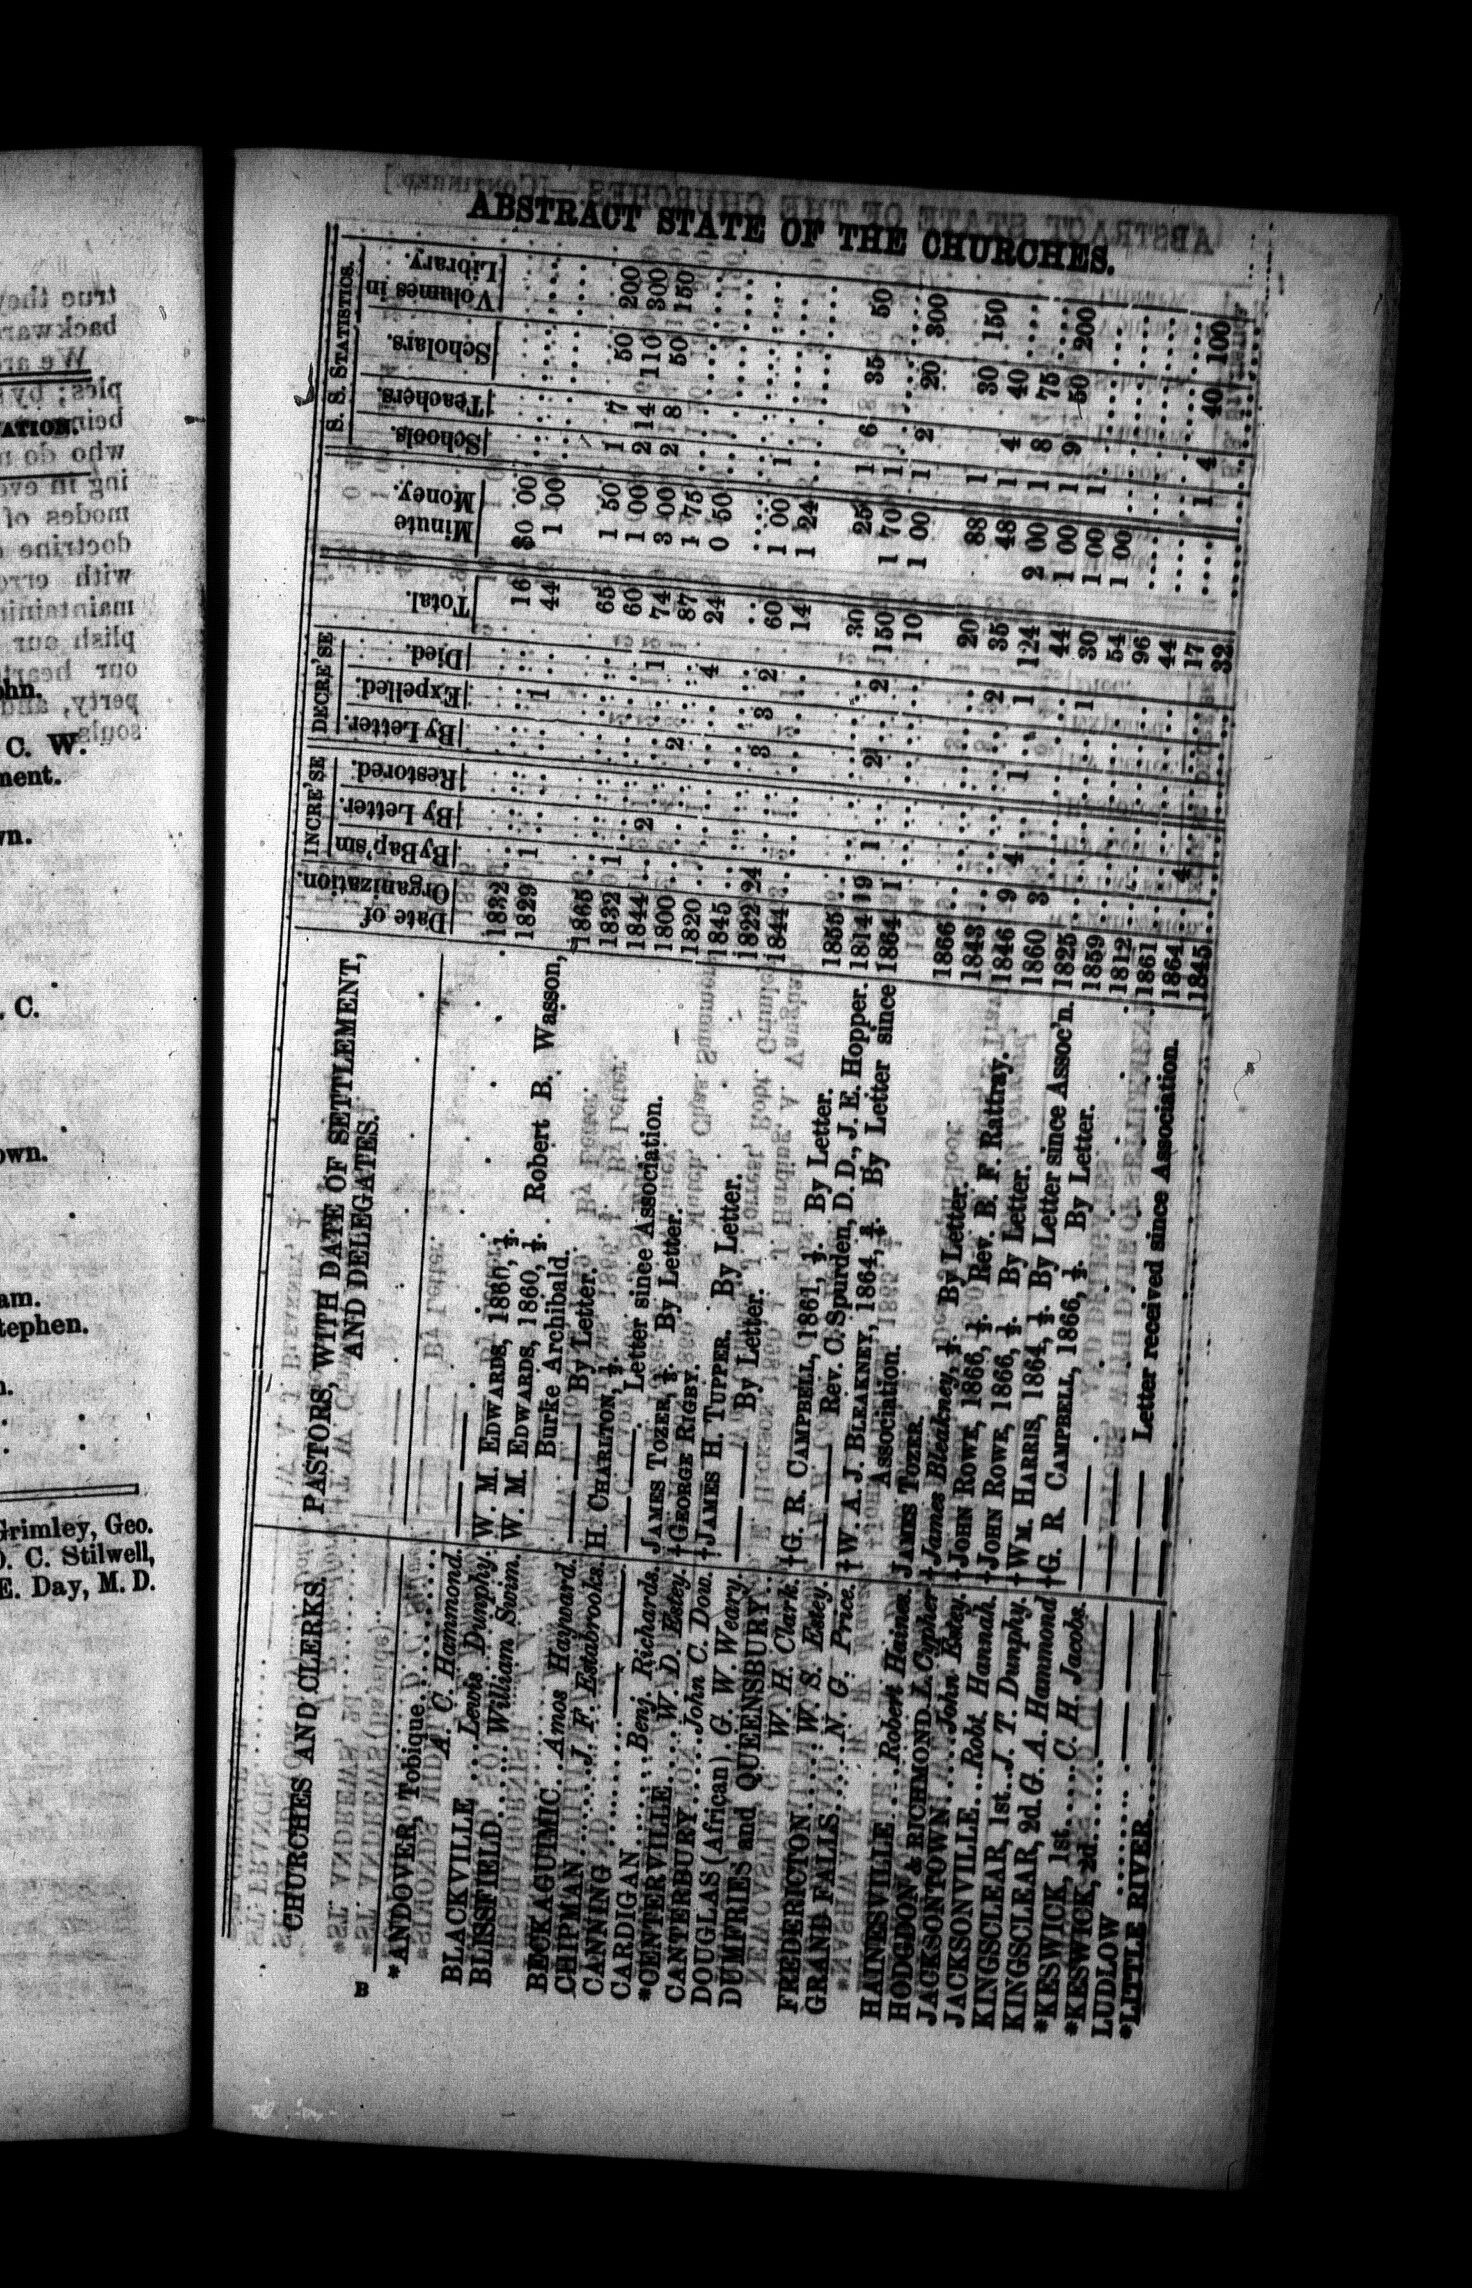 ABSTRACT STATE OF THE CHURCHES.
CHURCHES AND CLERKS.
PASTORS, WITH DATE OF SETTLEMENT,
AND DELEGATES.
Date of
Organization.
INCRE'SE
By Bap'sm
By Letter.
Restored.
DECRE'SE
By Letter.
Expelled.
Died.
Total.
Minute
Money.
S. S. STATISTICS.
Schools.
Teachers.
Scholars.
Volumes in
Library.
*ANDOVER, Tobique
BLACKVILLE A. C. Hammond. 1832 16 $0 00
BLISSFIELD Lewis Dunphy. W. M. EDWARDS, 1860, ½. 1829 1 1 44 1 00
William Swim. W. M. EDWARDS, 1860, ½. Robert B. Wasson,
Burke Archibald.
BECKAGUIMIC Amos Hayward. By Letter. 1865 65 1 50 1 7 50 200
CHIPMAN J. F. Estabrooks. H. CHARLTON, ½. 1832 1 60 1 00 2 14 110 300
CANNING Letter since Association. 1844 2 1 74 3 00 2 8 50 150
CARDIGAN Benj. Richards. JAMES TOZER, ½. By Letter. 1800 2 87 1 75
*CENTERVILLE W. D. Estey. †GEORGE RIGBY. 1820 4 24 0 50
CANTERBURY John C. Dow. †JAMES H. TUPPER. By Letter. 1845
DOUGLAS (African) G. W. Weary. By Letter. 1822 24 3 3 2 60 1 00 1
DUMFRIES and QUEENSBURY 1844 14 1 24
W. H. Clark. †G. R. CAMPBELL, 1861, ½. By Letter. 1855 30 25 1 6 35 50
FREDERICTON W. S. Estey. Rev. C. Spurden, D. D., J. E. Hopper. 1814 19 1 2 2 150 1 70 1
GRAND FALLS N. G. Price. †W. A. J. BLEAKNEY, 1864, ½. By Letter since 1864 1 10 1 00 1 2 20 300
Association.
HAINESVILLE Robert Haines. JAMES TOZER. 1866 20 88 1 30 150
HODGDON & RICHMOND. L. Cypher †James Bleakney, ½. By Letter. 1843 2 35 48 1 4 40
JACKSONTOWN John Estey. †JOHN ROWE, 1866, ½. Rev. B. F. Rattray. 1846 9 4 1 1 124 2 00 1 8 75
JACKSONVILLE Robt. Hannah. †JOHN ROWE, 1866, ½. By Letter. 1860 3 44 1 00 1 9 50 200
KINGSCLEAR, 1st. J. T. Dunphy. †WM. HARRIS, 1864, ½. By Letter since Assoc'n. 1825 1 30 1 00 1
KINGSCLEAR, 2d. G. A. Hammond †G. R. CAMPBELL, 1866, ½. By Letter. 1859 54 1 00
*KESWICK, 1st. 1812 96
*KESWICK, 2d 1861 44
LUDLOW C. H. Jacobs. Letter received since Association. 1864 4 17 1 4 40 100
*LITTLE RIVER 1845 32
B
ATION.
C. W.
ment.
wn.
. C.
own.
am.
tephen.
Grimley, Geo.
C. Stilwell,
E. Day, M. D.